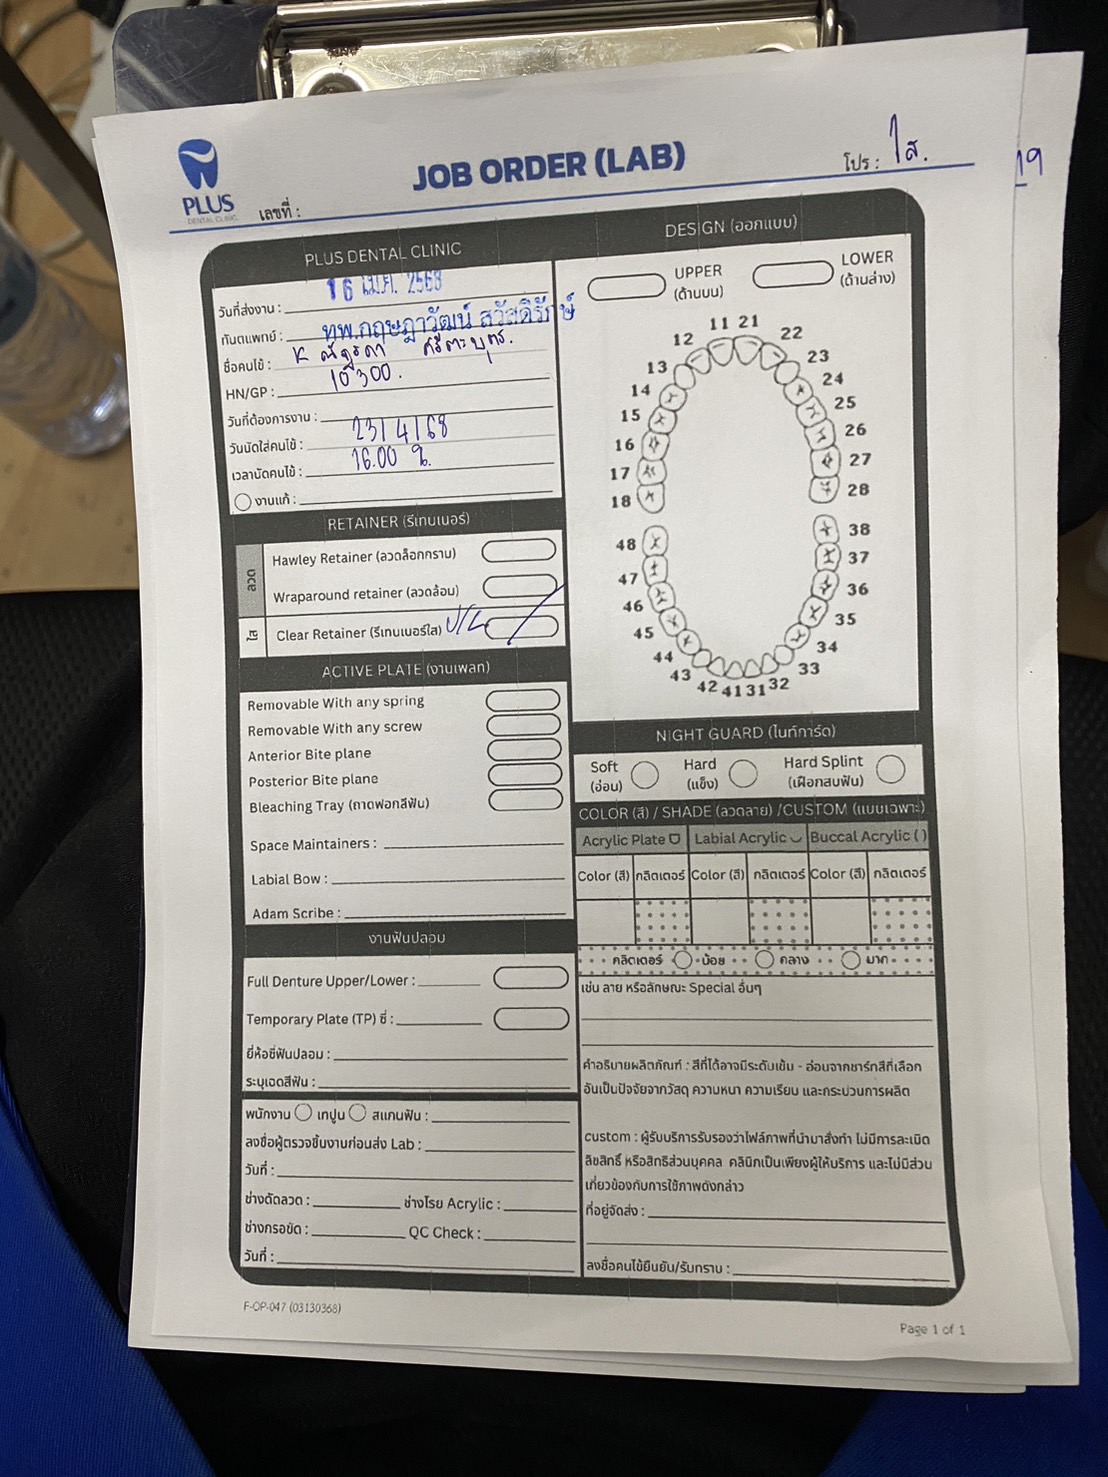 PLUS
DENTAL CLINIC
JOB ORDER (LAB)
เลขที่ :
โปร : ใส.
19
PLUS DENTAL CLINIC
วันที่ส่งงาน : 16 เม.ย. 2568
ทันตแพทย์ : ทพ.กฤษฎาวัฒน์ สวัสดิรักษ์
ชื่อคนไข้ :
HN/GP : 10300.
วันที่ต้องการงาน :
วันนัดใส่คนไข้ : 23/4/68
เวลานัดคนไข้ : 16.00 น.
งานแก้ :
RETAINER (รีเทนเนอร์)
ลวด
Hawley Retainer (ลวดล็อกกราม)
Wraparound retainer (ลวดล้อม)
ใส
Clear Retainer (รีเทนเนอร์ใส) U/L
ACTIVE PLATE (งานเพลท)
Removable With any spring
Removable With any screw
Anterior Bite plane
Posterior Bite plane
Bleaching Tray (ถาดฟอกสีฟัน)
Space Maintainers :
Labial Bow :
Adam Scribe :
งานฟันปลอม
Full Denture Upper/Lower :
Temporary Plate (TP) ซี่ :
ยี่ห้อซี่ฟันปลอม :
ระบุเฉดสีฟัน :
พนักงาน เทปูน สแกนฟัน :
ลงชื่อผู้ตรวจชิ้นงานก่อนส่ง Lab :
วันที่ :
ช่างดัดลวด : ช่างโรย Acrylic :
ช่างกรอขัด : QC Check :
วันที่ :
DESIGN (ออกแบบ)
UPPER
(ด้านบน)
LOWER
(ด้านล่าง)
11 21
12 22
13 23
14 24
15 25
16 26
17 27
18 28
48 38
47 37
46 36
45 35
44 34
43 33
42 41 31 32
NIGHT GUARD (ไนท์การ์ด)
Soft
(อ่อน)
Hard
(แข็ง)
Hard Splint
(เฝือกสบฟัน)
COLOR (สี) / SHADE (ลวดลาย) /CUSTOM (แบบเฉพาะ)
Acrylic Plate Labial Acrylic Buccal Acrylic ( )
Color (สี) กลิตเตอร์ Color (สี) กลิตเตอร์ Color (สี) กลิตเตอร์
กลิตเตอร์ น้อย กลาง มาก
เช่น ลาย หรือลักษณะ Special อื่นๆ
คำอธิบายผลิตภัณฑ์ : สีที่ได้อาจมีระดับเข้ม - อ่อนจากชาร์ทสีที่เลือก
อันเป็นปัจจัยจากวัสดุ ความหนา ความเรียบ และกระบวนการผลิต
custom : ผู้รับบริการรับรองว่าไฟล์ภาพที่นำมาสั่งทำ ไม่มีการละเมิด
ลิขสิทธิ์ หรือสิทธิส่วนบุคคล คลินิกเป็นเพียงผู้ให้บริการ และไม่มีส่วน
เกี่ยวข้องกับการใช้ภาพดังกล่าว
ที่อยู่จัดส่ง :
ลงชื่อคนไข้ยืนยัน/รับทราบ :
F-OP-047 (03130368)
Page 1 of 1